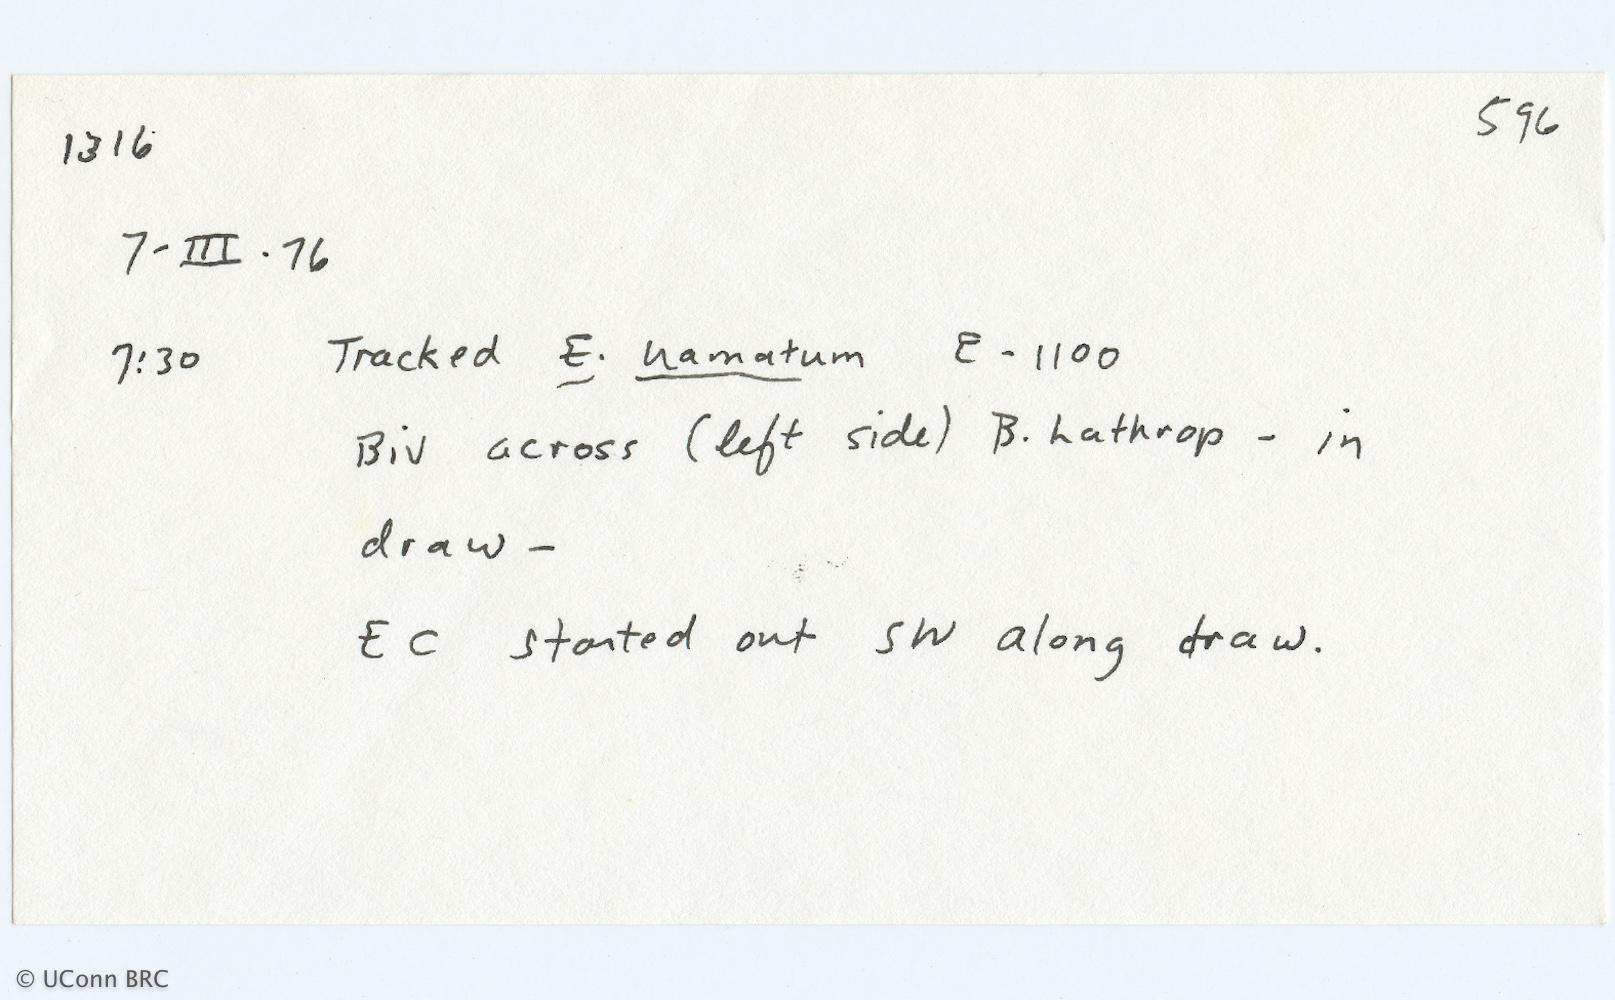 1316
596
7-III.76
7:30 Tracked E. hamatum E-1100
Biv across (left side) B. Lathrop - in
draw -
EC started out SW along draw.
© UConn BRC